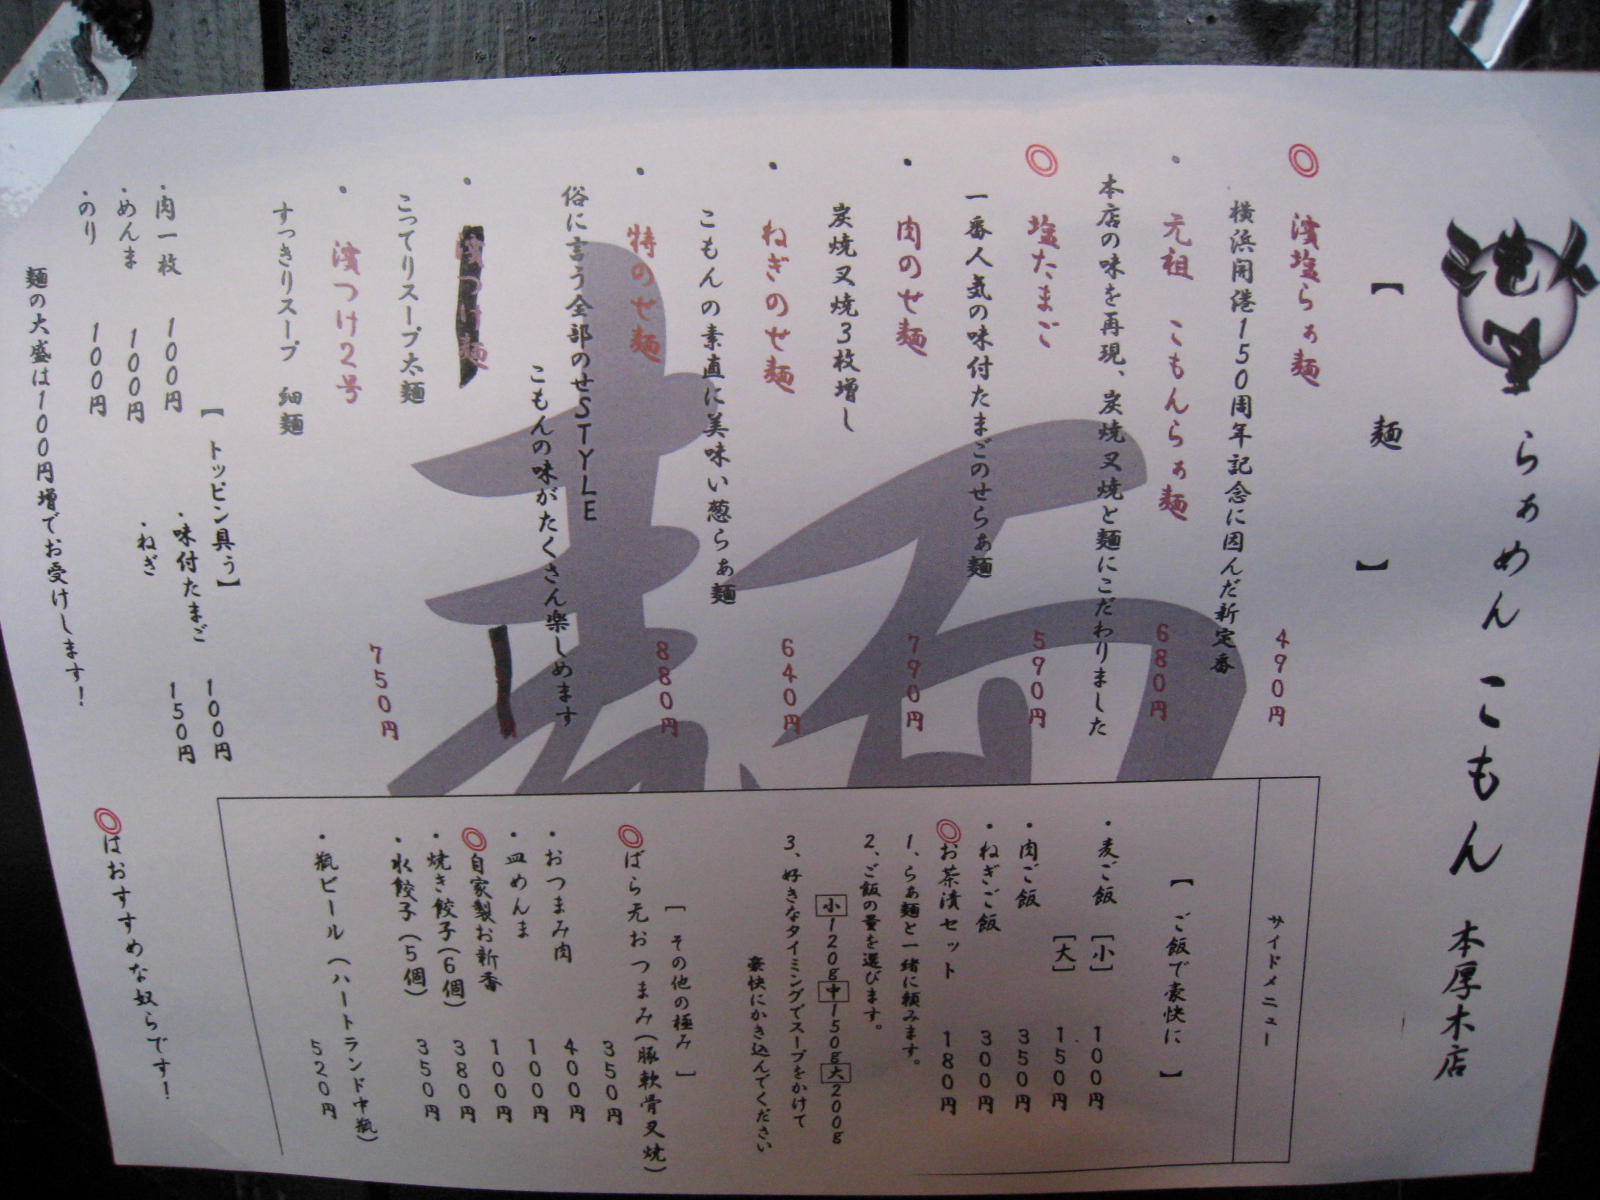 こもん
らぁめん こもん 本厚木店
【 麺 】
◎ 濱塩らぁ麺 490円
横浜開港150周年記念に因んだ新定番
・ 元祖 こもんらぁ麺 680円
本店の味を再現、炭焼叉焼と麺にこだわりました
◎ 塩たまご 590円
一番人気の味付たまごのせらぁ麺
・ 肉のせ麺 790円
炭焼叉焼3枚増し
・ ねぎのせ麺 640円
こもんの素直に美味い葱らぁ麺
・ 特のせ麺 880円
俗に言う全部のせSTYLE
こもんの味がたくさん楽しめます
・ 濱つけ麺
こってりスープ太麺
・ 濱つけ2号 750円
すっきりスープ 細麺
【トッピン具う】
・肉一枚 100円
・味付たまご 100円
・めんま 100円
・ねぎ 150円
・のり 100円
麺の大盛は100円増でお受けします!
サイドメニュー
【 ご飯で豪快に 】
・麦ご飯 [小] 100円
[大] 150円
・肉ご飯 350円
・ねぎご飯 300円
◎お茶漬セット 180円
1、らぁ麺と一緒に頼みます。
2、ご飯の量を選びます。
小120g中150g大200g
3、好きなタイミングでスープをかけて
豪快にかき込んでください
[ その他の極み ]
◎ばら元おつまみ(豚軟骨叉焼)
350円
・おつまみ肉 400円
・皿めんま 100円
◎自家製お新香 100円
・焼き餃子(6個) 380円
・水餃子(5個) 350円
・瓶ビール(ハートランド中瓶)
520円
◎はおすすめな奴らです!
麺